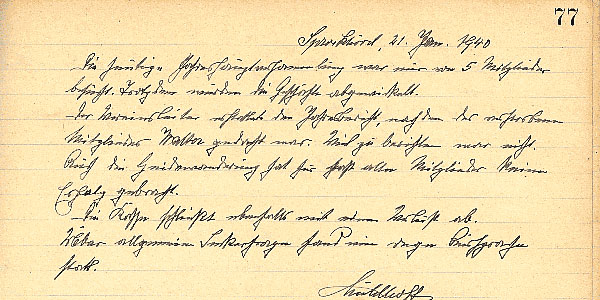 77
21. Jan. 1940
Die heutige Jahreshauptversammlung war nur von 5 Mitglieder
besucht. Trotzdem wurden die Geschäfte abgewickelt.
Der Vereinsleiter erstattete den Jahresbericht, nachdem des verstorbenen
Mitgliedes Walter gedacht war. Viel zu berichten war nicht.
Auch die Heidewanderung hat für fast alle Mitglieder keinen
Erfolg gebracht.
Die Kasse schließt ebenfalls mit einem Verlust ab.
Über allgemeine Imkerfragen fand eine rege Aussprache
statt.